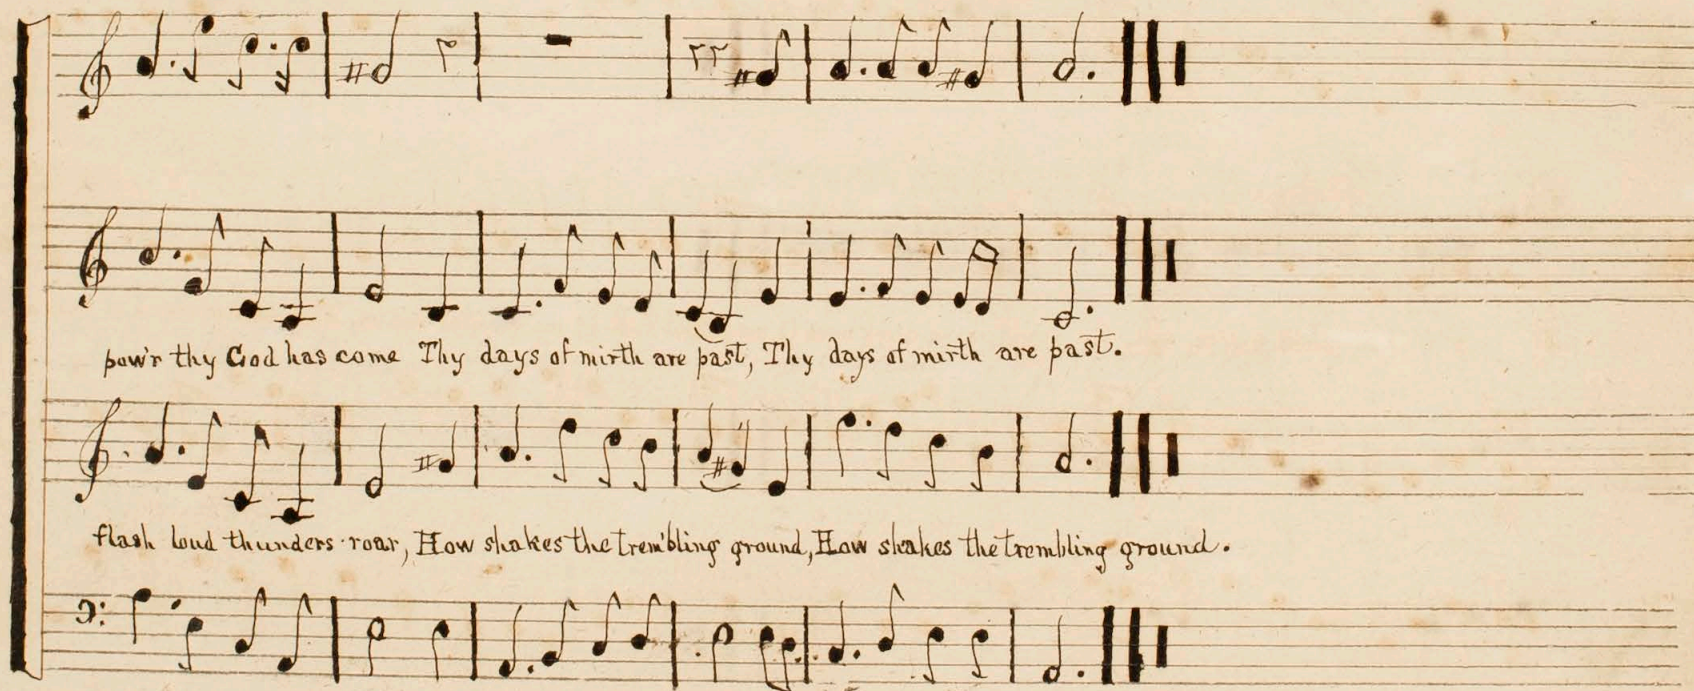 pow'r thy God has come Thy days of mirth are past, Thy days of mirth are past.
flash loud thunders roar, How shakes the trem'bling ground, How shakes the trembling ground.